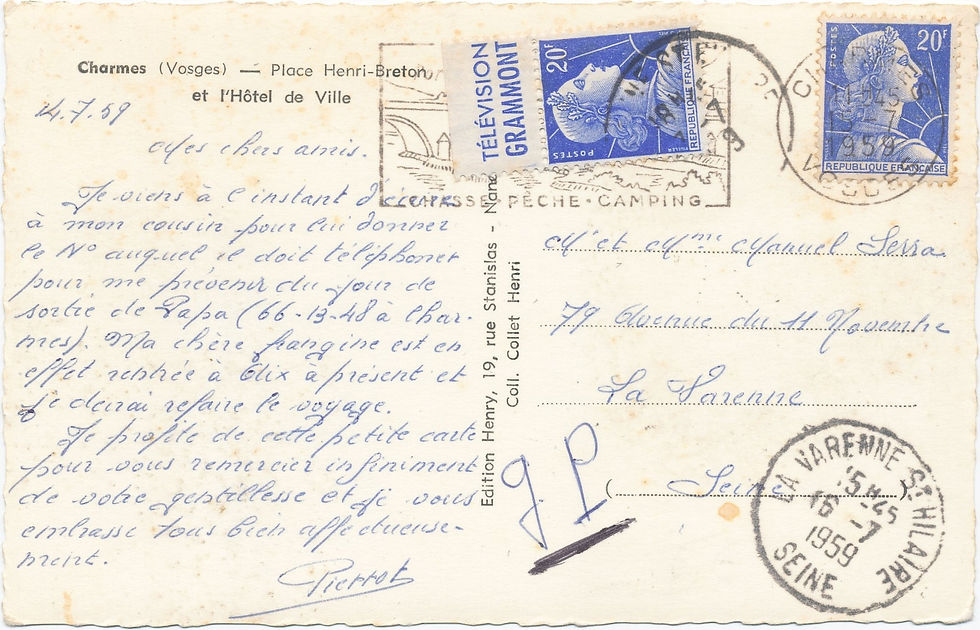 Charmes (Vosges) — Place Henri-Breton
et l'Hôtel de Ville
14.7.59
Mes chers amis.
Je viens à l'instant d'écrire
à mon cousin pour lui donner
le N° auquel il doit téléphoner
pour me prévenir du jour de
sortie de Papa (66-13-48 à Char-
mes). Ma chère frangine est en
effet rentrée à Aix à présent et
je devrai refaire le voyage.
Je profite de cette petite carte
pour vous remercier infiniment
de votre gentillesse et je vous
embrasse tous bien affectueuse-
ment.
Pierrot
Edition Henry, 19, rue Stanislas - Nanc
Coll. Collet Henri
TÉLÉVISION
GRAMMONT
20F
POSTES
RÉPUBLIQUE FRANÇAISE
CHASSE · PÊCHE · CAMPING
20F
POSTES
REPUBLIQUE FRANÇAISE
CHARMES
1959
VOSGES
Mr et Mme Manuel Serra
79 Avenue du 11 Novembre
La Varenne
(Seine)
LA VARENNE ST HILAIRE
15H45
16-7
1959
SEINE